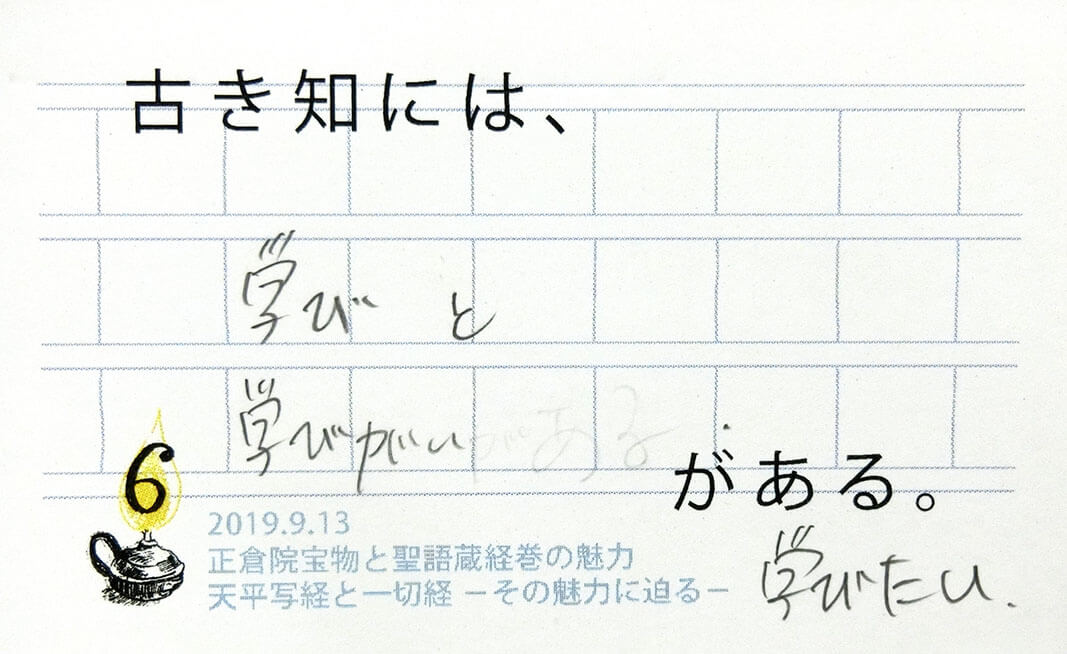 古き知には、
学びと
学びがいがある
がある。
6
2019.9.13
正倉院宝物と聖語蔵経巻の魅力
天平写経と一切経 －その魅力に迫る－
学びたい.